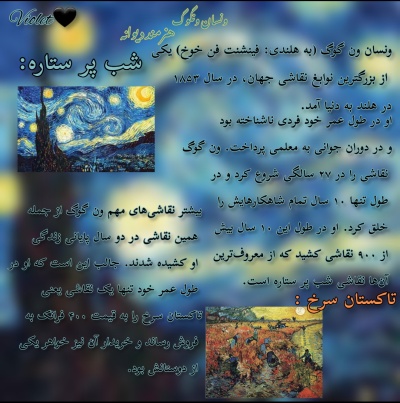 Violet
ونسان ونگوگ
هنرمند دیوانه
ونسان ون گوگ (به هلندی: فینشنت فن خوخ) یکی
از بزرگترین نوابغ نقاشی جهان، در سال ۱۸۵۳
در هلند به دنیا آمد.
او در طول عمر خود فردی ناشناخته بود
و در دوران جوانی به معلمی پرداخت. ون گوگ
نقاشی را در ۲۷ سالگی شروع کرد و در
طول تنها ۱۰ سال تمام شاهکارهایش را
خلق کرد. او در طول این ۱۰ سال بیش
از ۹۰۰ نقاشی کشید که از معروف‌ترین
آن‌ها نقاشی شب پر ستاره است.
شب پر ستاره:
بیشتر نقاشی‌های مهم ون گوگ از جمله
همین نقاشی در دو سال پایانی زندگی
او کشیده شدند. جالب این است که او در
طول عمر خود تنها یک نقاشی یعنی
تاکستان سرخ را به قیمت ۴۰۰ فرانک به
فروش رساند و خریدار آن نیز خواهر یکی
از دوستانش بود.
تاکستان سرخ :